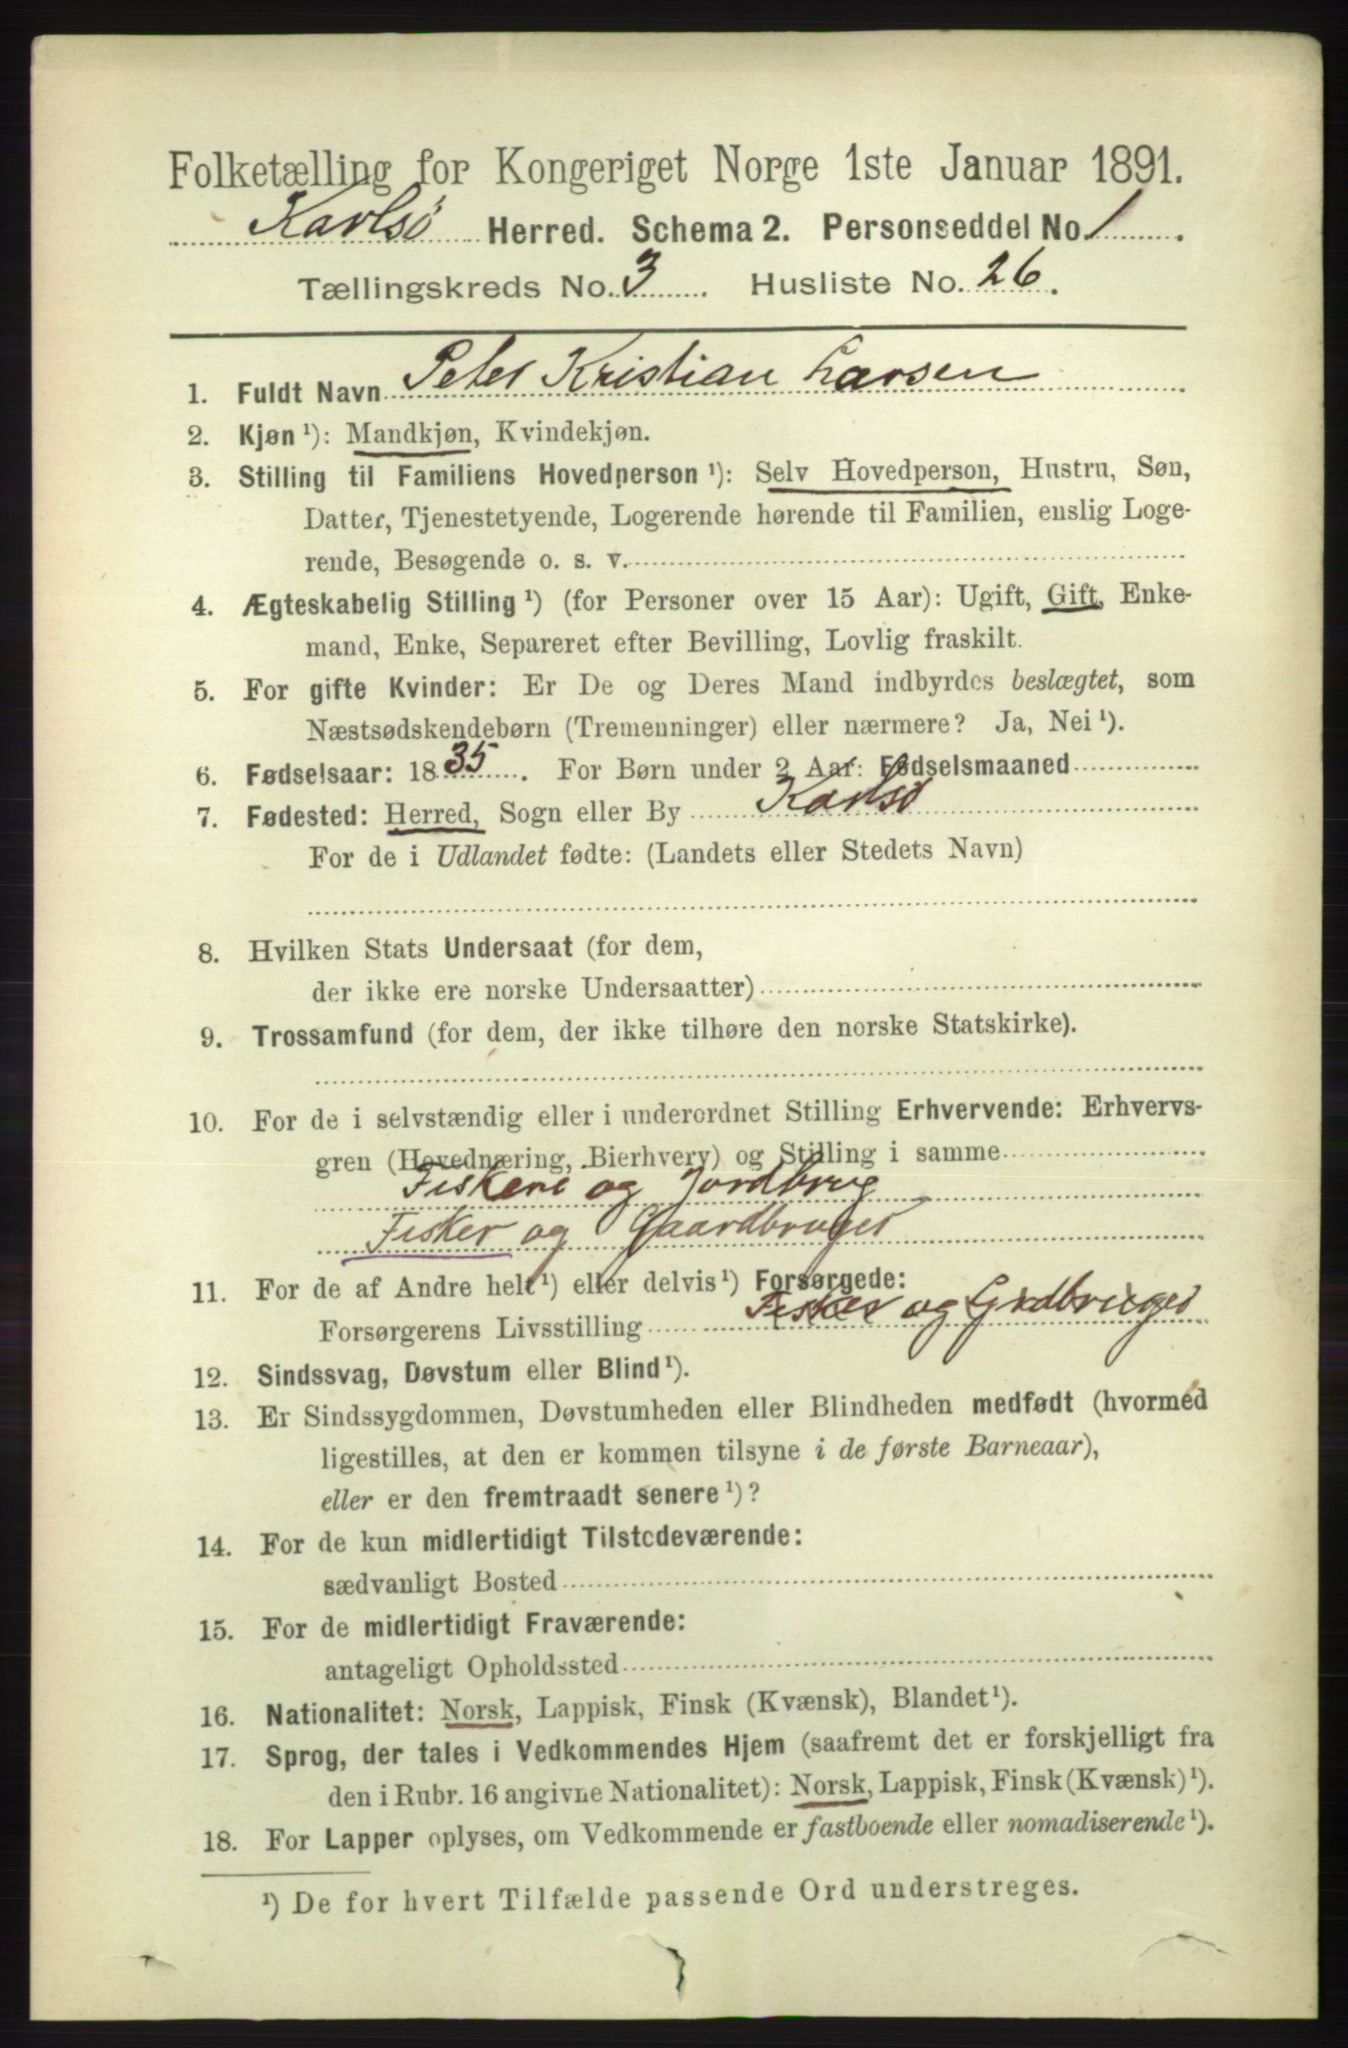 Folketælling for Kongeriget Norge 1ste Januar 1891.
Karlsö Herred. Schema 2. Personseddel No. 1
Tællingskreds No. 3 Husliste No. 26.
1. Fuldt Navn Peter Kristian Larsen
2. Kjøn¹): Mandkjøn, Kvindekjøn.
3. Stilling til Familiens Hovedperson¹): Selv Hovedperson, Hustru, Søn,
Datter, Tjenestetyende, Logerende hørende til Familien, enslig Loge-
rende, Besøgende o. s. v.
4. Ægteskabelig Stilling¹) (for Personer over 15 Aar): Ugift, Gift, Enke-
mand, Enke, Separeret efter Bevilling, Lovlig fraskilt.
5. For gifte Kvinder: Er De og Deres Mand indbyrdes beslægtet, som
Næstsødskendebørn (Tremenninger) eller nærmere? Ja, Nei¹).
6. Fødselsaar: 1835. For Børn under 2 Aar: Fødselsmaaned
7. Fødested: Herred, Sogn eller By Karlsö
For de i Udlandet fødte: (Landets eller Stedets Navn)
8. Hvilken Stats Undersaat (for dem,
der ikke ere norske Undersaatter)
9. Trossamfund (for dem, der ikke tilhøre den norske Statskirke).
10. For de i selvstændig eller i underordnet Stilling Erhvervende: Erhvervs-
gren (Hovednæring, Bierhverv) og Stilling i samme
Fiskeri og Jordbrug
Fisker og Gaardbruger
11. For de af Andre helt¹) eller delvis¹) Forsørgede:
Forsørgerens Livsstilling Fisker og Grdbruger
12. Sindssvag, Døvstum eller Blind¹).
13. Er Sindssygdommen, Døvstumheden eller Blindheden medfødt (hvormed
ligestilles, at den er kommen tilsyne i de første Barneaar),
eller er den fremtraadt senere¹)?
14. For de kun midlertidigt Tilstedeværende:
sædvanligt Bosted
15. For de midlertidigt Fraværende:
antageligt Opholdssted
16. Nationalitet: Norsk, Lappisk, Finsk (Kvænsk), Blandet¹).
17. Sprog, der tales i Vedkommendes Hjem (saafremt det er forskjelligt fra
den i Rubr. 16 angivne Nationalitet): Norsk, Lappisk, Finsk (Kvænsk)¹).
18. For Lapper oplyses, om Vedkommende er fastboende eller nomadiserende¹).
¹) De for hvert Tilfælde passende Ord understreges.